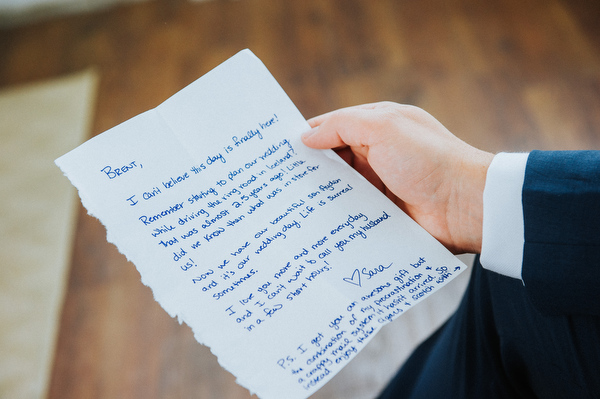 BRENT,
I can't believe this day is finally here!
Remember starting to plan our wedding
while driving the ring road in Iceland?
That was almost 2.5 years ago! Little
did we know then what was in store for
us!
Now we have our beautiful son Ayden
and it's our wedding day. Life is surreal
sometimes.
I love you more and more everyday
and I can't wait to call you my husband
in a few short hours!
♡ Sara
P.S. I got you an awesome gift but
the combination of my procrastination &
a crappy mail system it hasn't arrived. So
instead enjoy these cigars & scotch with